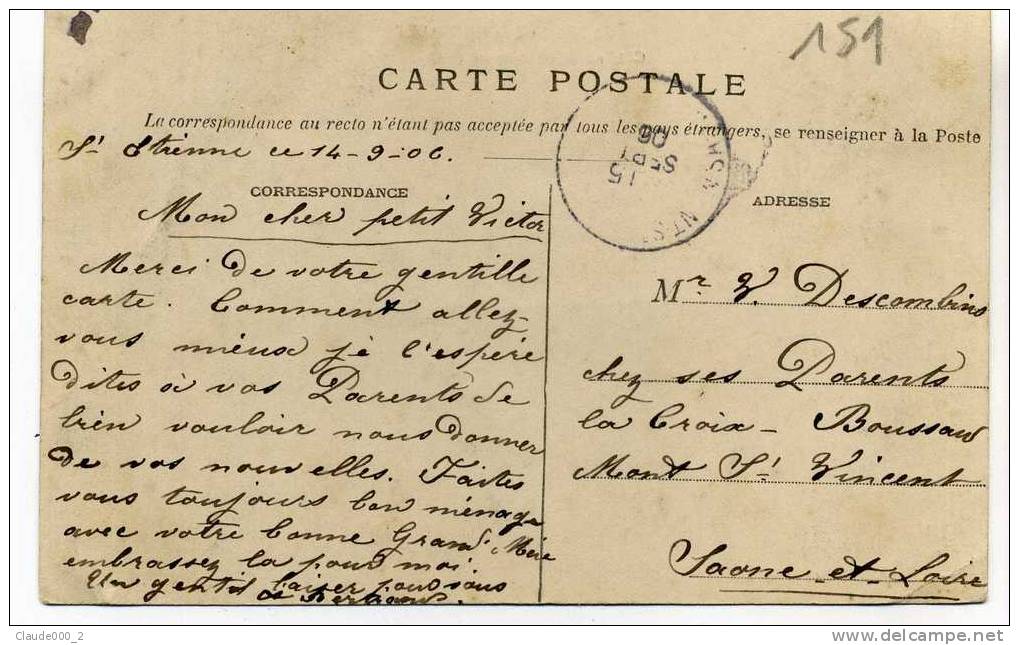 151
CARTE POSTALE
La correspondance au recto n'étant pas acceptée par tous les pays étrangers, se renseigner à la Poste
St Etienne ce 14-9-06.
15
SEPT
06
CORRESPONDANCE
ADRESSE
Mon cher petit Victor
Merci de votre gentille
carte. Comment allez-
vous mieux je l'espére
Dites à vos Parents de
bien vouloir nous donner
de vos nouvelles. Faites
vous toujours bon ménage
avec votre bonne Grand'Mère
embrassez la pour moi.
Un gentil baiser pour vous
Mr V. Descombins
chez ses Parents
la Croix - Boussaud
Mont St Vincent
Saone-et-Loire
Claude000_2
www.delcampe.net